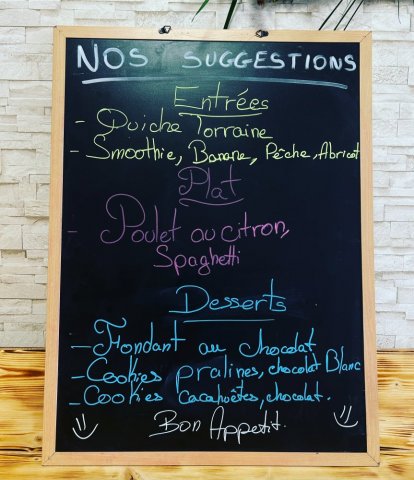 NOS SUGGESTIONS
Entrées
- Quiche Lorraine
- Smoothie, Banane, Pêche, Abricot
Plat
- Poulet au citron,
Spaghetti
Desserts
- Fondant au chocolat
- Cookies pralines, chocolat Blanc
- Cookies Cacahoëtes, chocolat.
Bon Appetit.